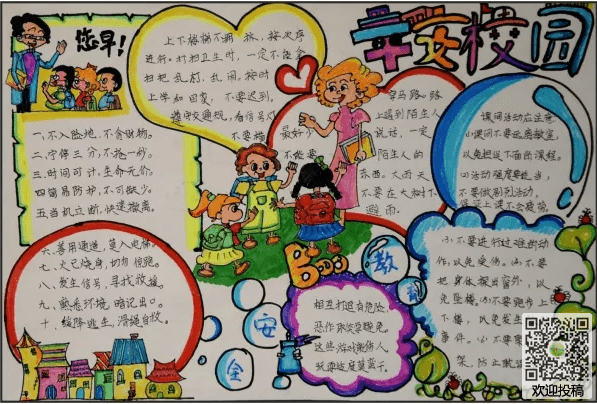 您早!
平安校园
上下楼梯不拥挤,按次序
进行。打扫卫生时,一定不能拿
扫把乱打、乱闹。按时
上学和回家,不要迟到,
遵守交通规,看信号灯
一、不入险地,不贪财物。
二、宁停三分,不抢一秒。
三、时间可计,生命无价。
四、简易防护,不可缺少。
五、当机立断,快速撤离。
六、善用通道,莫入电梯。
七、火已烧身,切勿惊跑。
八、发生信号,寻找救援。
九、熟悉环境,暗记出口。
十、缓降逃生,滑绳自救。
过马路
上遇到陌生人
说话,一定
不能要
陌生人的
东西。大雨天
不要在大树下
避雨。
课间活动应注意
小课间不要远离教室,
以免耽误下面的课程。
活动强度要适当,
不要做剧烈活动,
不要进行过难的动
作,以免受伤。不要
把身体探出窗外,以
免坠楼。不要跑步上
下楼,以免发生
事件。不要
安全教育
相互打逗有危险,
恶作剧
这些游戏能伤人,
欢迎投稿